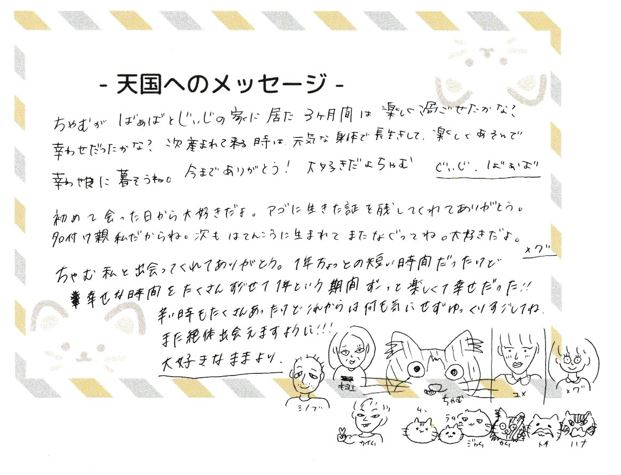 - 天国へのメッセージ -
ちゃむが ばぁばとじぃじの家に居た 3ヶ月間は 楽しく過ごせたかな?
幸わせだったかな? 次産まれて来る時は 元気な身体で長生きして、楽しくあそんで
幸わせに暮そうね。今までありがとう! 大好きだよちゃむ じぃじ、ばぁば
初めて会った日から大好きだよ。アゴに生きた証を残してくれてありがとう。
名付け親 私だからね。次も はてんこうに生まれて またなぐってね。大好きだよ。
メグ
ちゃむ 私と出会ってくれてありがとう。1年ちょっとの短い時間だったけど
幸せな時間をたくさんすごせて 1年という期間 ずっと楽しくて幸せだった!!
辛い時もたくさんあったけどこれからは何も気にせずゆっくりすごしてね。
また絶体出会えますように!!!
大好きなままより。
シノブ
ちゃむ
ユメ
メグ
カイム
ジロウ
ガム
トキ
ハナ